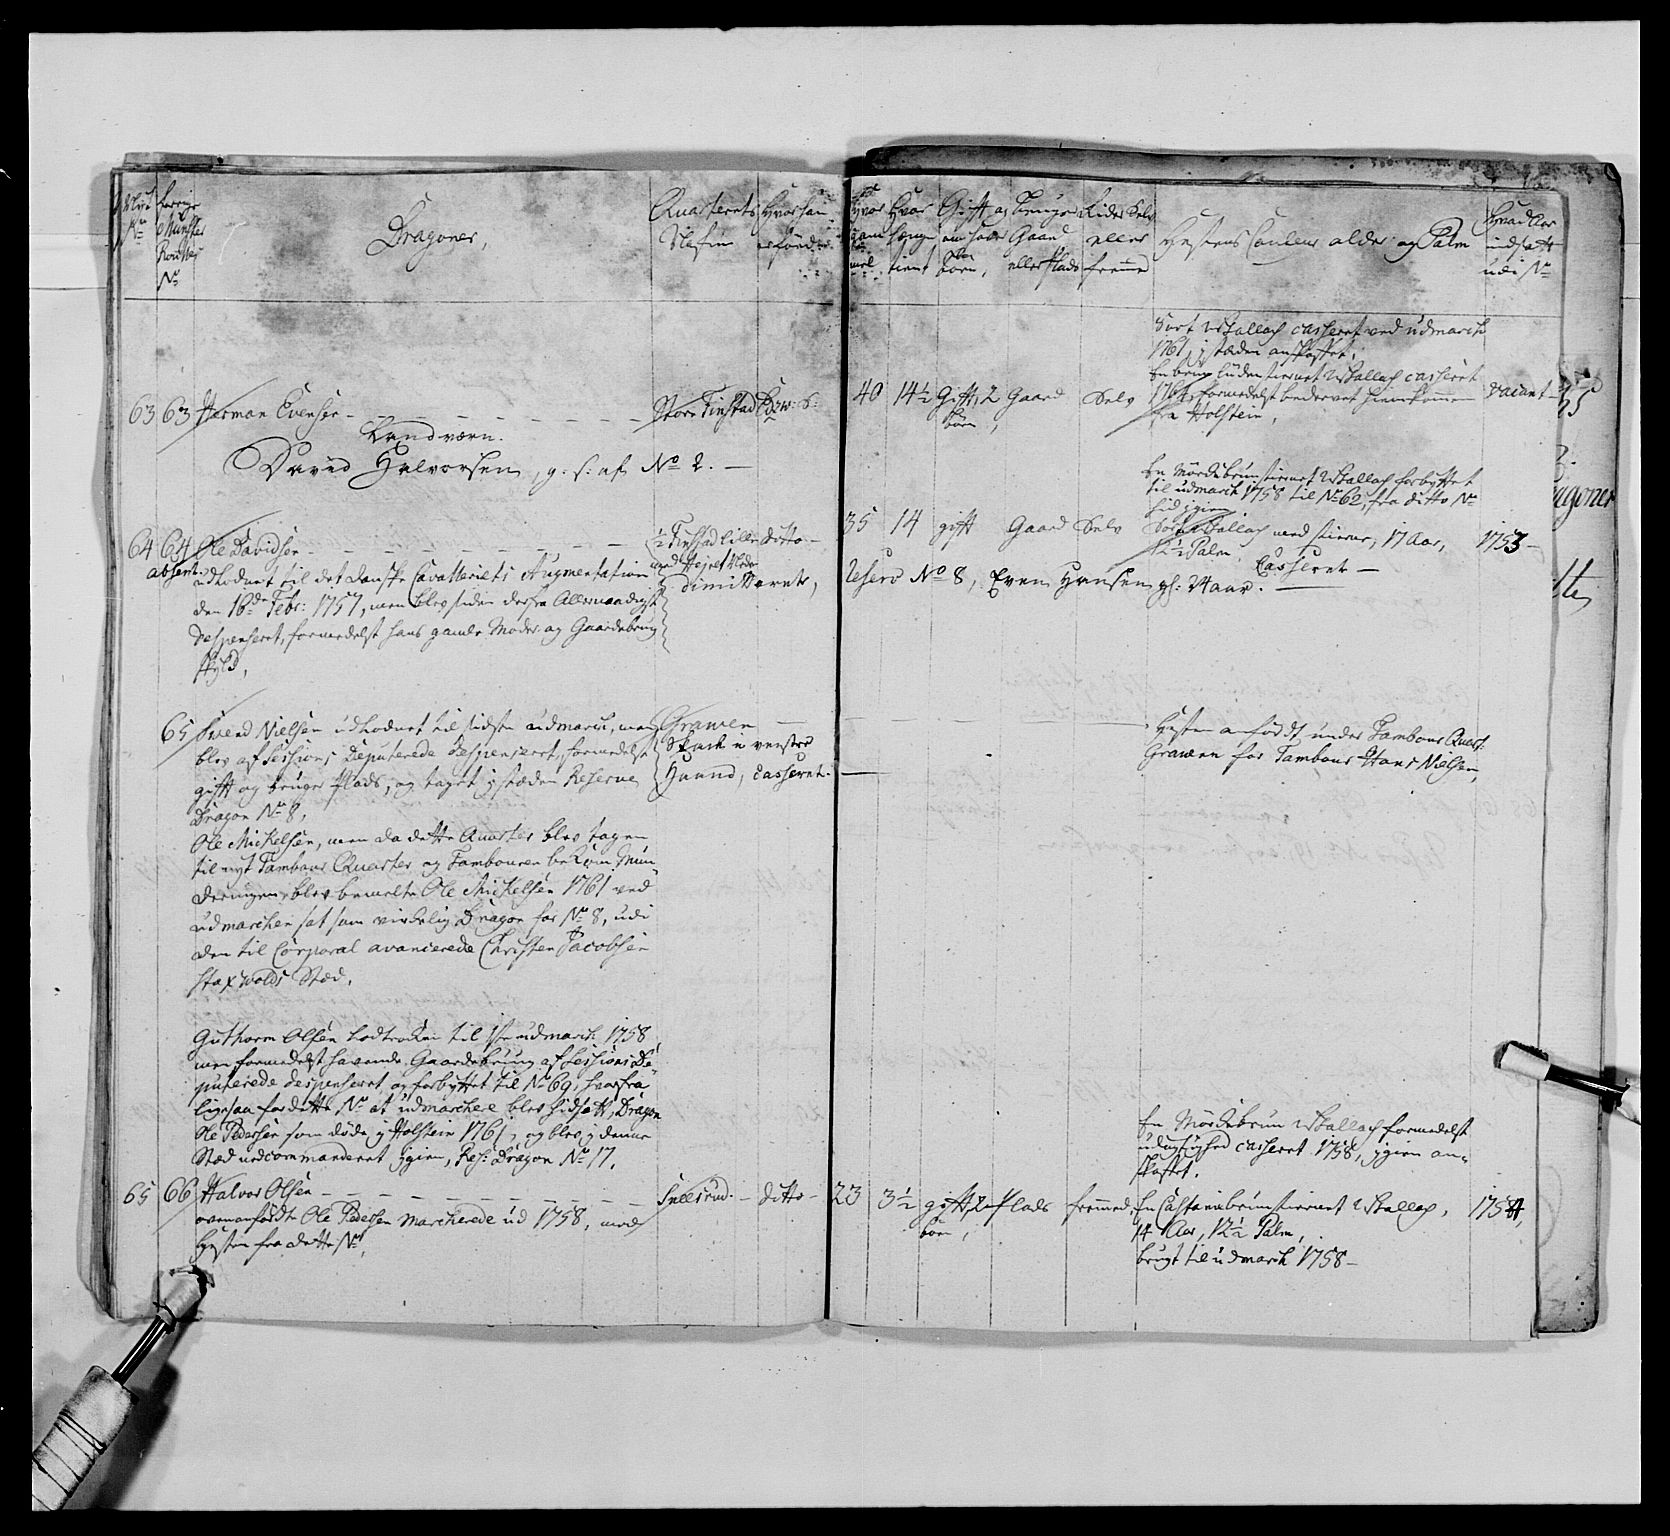 Nye
No
forrige
Munster
Roulles
No
Dragoner,
Quarterets
Nafne
Hvor han
er född
Hvor
gam
mel
Hvor
længe
tient
Gift og
om haver
børn,
Bruger
Gaard
eller Plads
Rider Selv
eller
fremmed
Hestens Couleur alder og Palm
Hvad Aar
indsatt
udi No
63 63 Herman Evensen
Store Finstad
40 14½ Gifft, 2 Gaard Selv
børn,
Sort Wallach casseret ved udmarch
1761, j stæden anskaffet.
En brun liuden stiernet Wallach casseret
1762, formedelst bedervet hiemkommen
fra Holstein,
vacant
Landværn.
David Halvorsen, g. s: af No 2.
64 64 Ole Davidsen
absent.
½ Finstad Lille ditto
35 14 gifft Gaard Selv
En Mørkbrun stiernet Wallach forbyttet
til udmarch 1758 til No 62, fra ditto No
hid igien
Sort Wallach med stierne, 17 Aar,
12½ Palm. Casseret
1753
udlodnet til det danske Cavalleriets Augmentation
den 16de Febr: 1757, men blev siden derfra Allernaadigst
despenseret, formedelst hans gamle Moder og Gaardebrug
skyld,
dimitteret,
Reserv No 8, Even Hansen gl: 24 aar.
65 Svend Nielsen udlodnet til sidste udmarch, men
blev af Sessions Deputerede despenseret, formedelst
gifft og bruger plads, og taget j stæden Reserve
Dragon No 8,
Grawen
Skack i venstre
Haand, Casseret.
Hesten anfödt under Tambour Quart:
Grawen for Tambour Hans Nielsen,
Ole Mickelsen, men da dette Quarter blev tagen
til nyt Tambour Quarter og Tambouren bekom Mun
deringen, blev bemelte Ole Mickelsen 1761 ved
udmarchen sat som virkelig Dragon for No 8, udi
den til Corporal avancerede Christen Jacobsen
Staxwolds Stæd.
Guthorm Olsen lodtrocken til 1ste udmarch 1758
men formedelst havende Gaardebrug af Sessions De
puterede despenseret og forbyttet til No 69, hvorfra
ligesaa for dette No at udmarchere blev hidsatt, Dragon
Ole Pedersen som døde j Holstein 1761, og blev j denne
Stæd udcommanderet igien, Res: Dragon No 17.
65 66 Halvor Olsen
Sulerud. ditto
23 3½ gifft, 2 Plads fremmed,
børn,
En Mörkebrun Wallach formedelst
udygtighed casseret 1758, igien an-
skaffet.
En Castaniebrun stiernet Wallach,
14 Aar, 12½ Palm,
brugt til udmarch 1758
ovenanfödte Ole Pedersen Marcherede ud 1758, med
Hesten fra dette No,